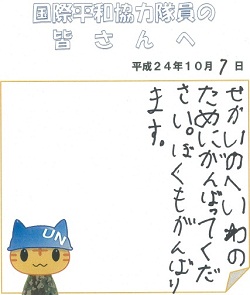 国際平和協力隊員の
皆さんへ
平成24年10月7日
せかいのへいわの
ためにがんばってくだ
さい。ぼくもがんばり
ます。
UN